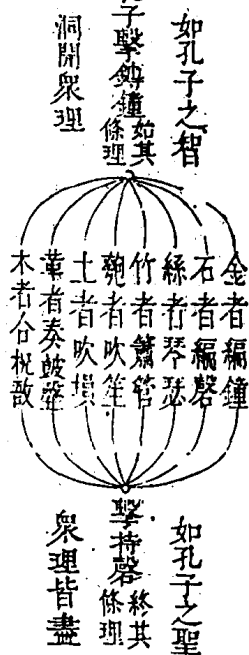 如孔子之智
子擊鎛鐘始其條理
洞開衆理
金者編鐘
石者編磬
絲者琴瑟
竹者簫管
匏者吹笙
土者吹塤
革者奏鼓鼙
木者合柷敔
如孔子之聖
擊特磬終其條理
衆理皆盡